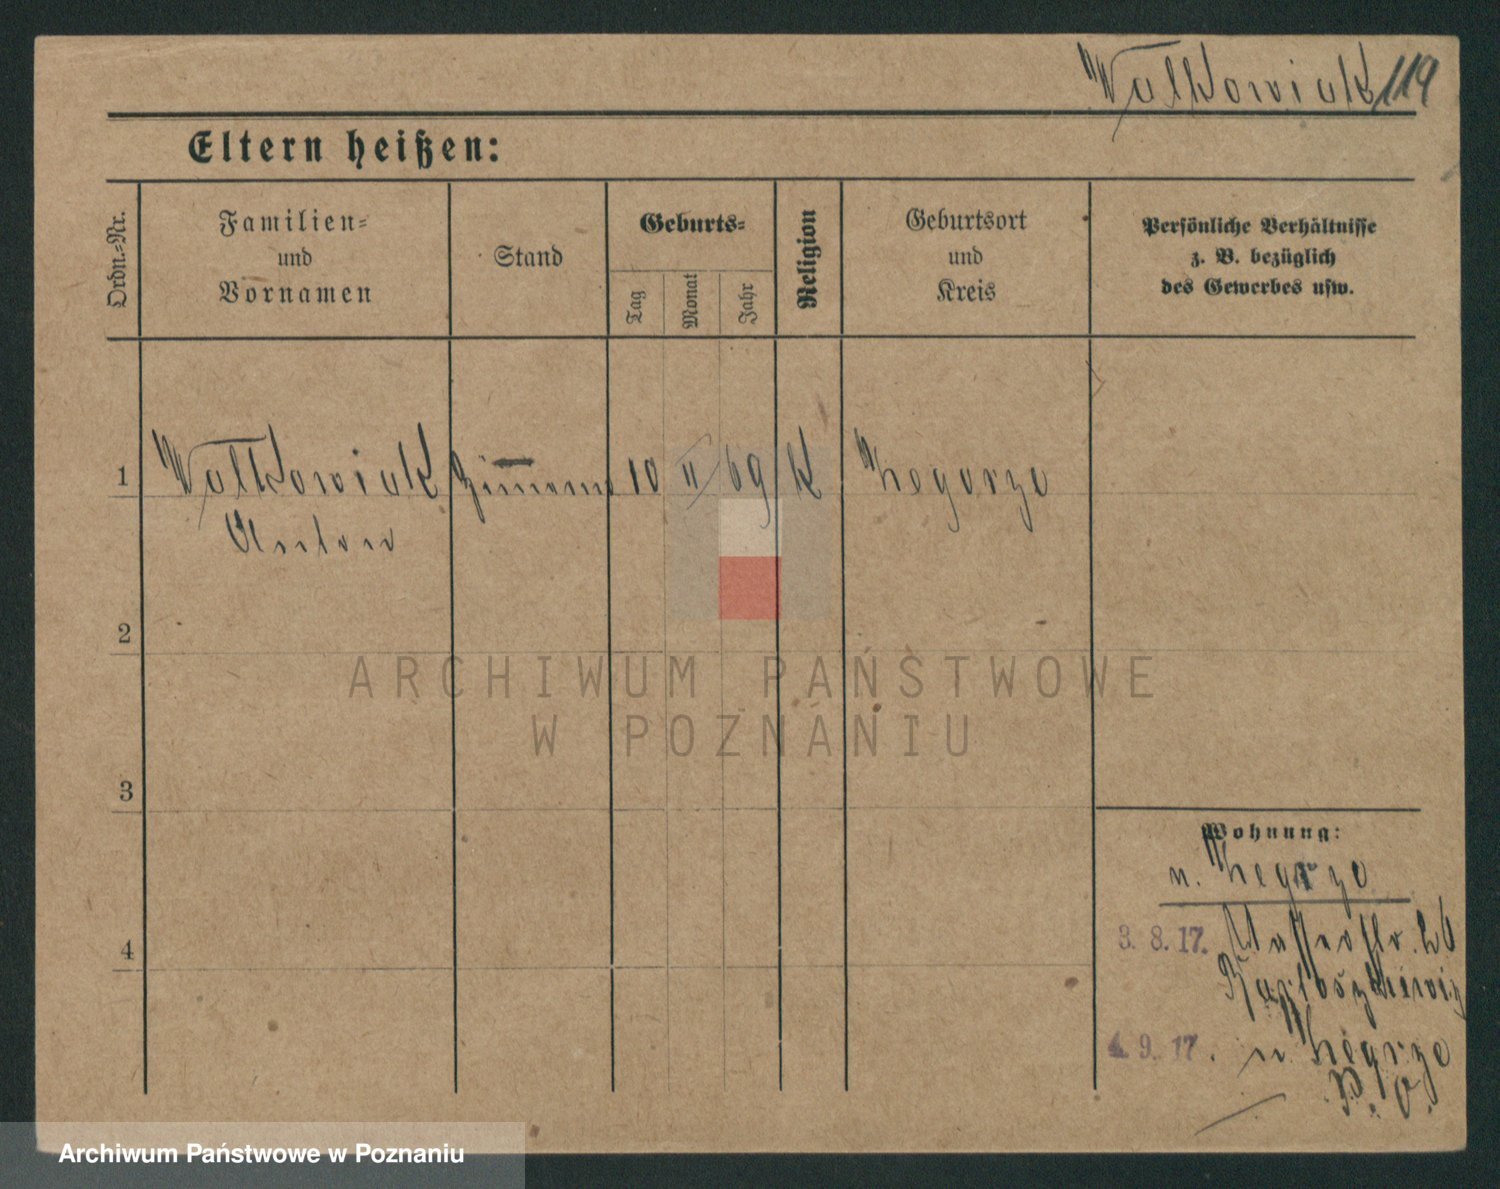 Walkowiak 119
Eltern heißen:
Ordn.-Nr.
Familien-
und
Vornamen
Stand
Geburts-
Tag
Monat
Jahr
Religion
Geburtsort
und
Kreis
Persönliche Verhältnisse
z. B. bezüglich
des Gewerbes usw.
1 Walkowiak 10 II 69 K
Anton
2
ARCHIWUM PAŃSTWOWE
W POZNANIU
3
Wohnung:
n.
3. 8. 17.
4
4. 9. 17. n.
P. O.
Archiwum Państwowe w Poznaniu